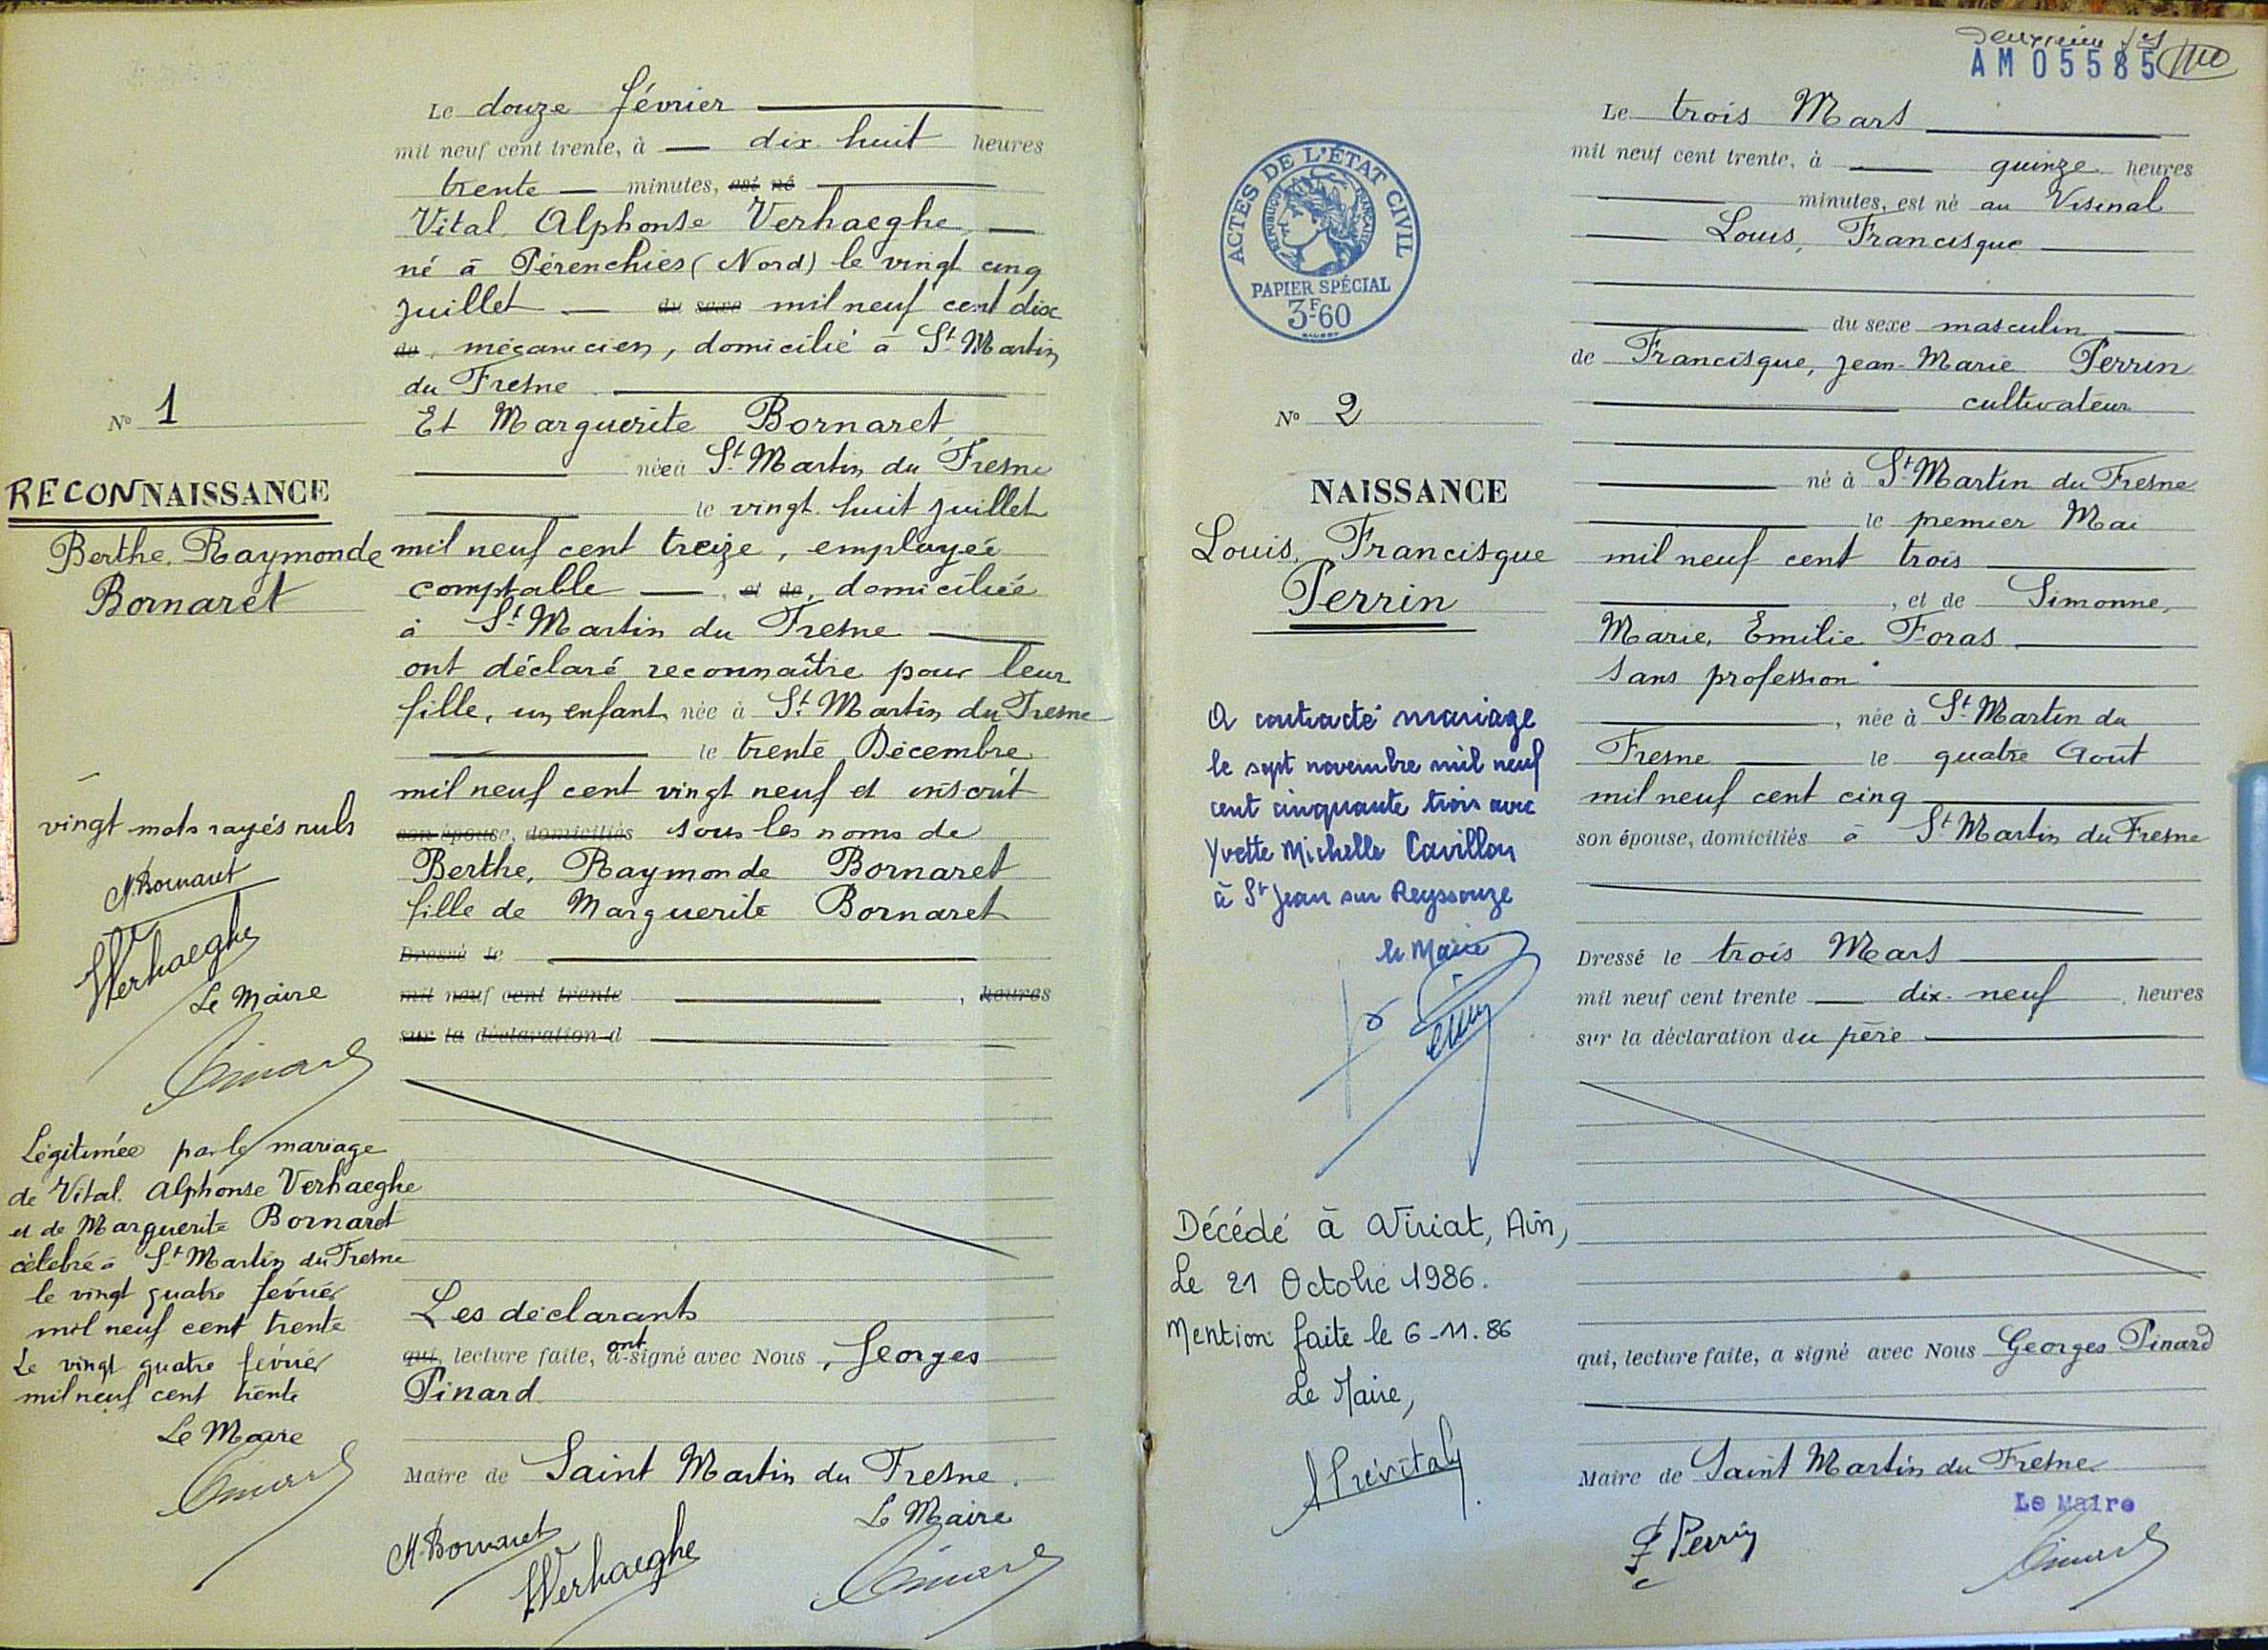 Le douze février
mil neuf cent trente, à dix huit heures
trente minutes, est né
Vital Alphonse Verhaeghe
né à Pérenchies (Nord) le vingt cinq
Juillet du sexe mil neuf cent dix
de, mécanicien, domicilié à St Martin
du Fresne
Et Marguerite Bornaret
née à St Martin du Fresne
le vingt huit Juillet
mil neuf cent treize, employée
comptable, et de, domiciliée
à St Martin du Fresne
ont déclaré reconnaître pour leur
fille, un enfant née à St Martin du Fresne
le trente Décembre
mil neuf cent vingt neuf et inscrit
son épouse, domiciliés sous les noms de
Berthe, Raymonde Bornaret
fille de Marguerite Bornaret
Dressé le
mil neuf cent trente, heures
sur la déclaration d
Les déclarants
qui, lecture faite, ont a signé avec Nous, Georges
Pinard
Maire de Saint Martin du Fresne.
Le Maire
M. Bornaret
Verhaeghe
Pinard
No 1
RECONNAISSANCE
Berthe, Raymonde
Bornaret
vingt mots rayés nuls
M Bornaret
Verhaeghe
Le Maire
Pinard
Légitimée par le mariage
de Vital Alphonse Verhaeghe
et de Marguerite Bornaret
célébré à St Martin du Fresne
le vingt quatre février
mil neuf cent trente
Le vingt quatre février
mil neuf cent trente
Le Maire
Pinard
deuxième
AM 05585
ACTES DE L'ÉTAT CIVIL
RÉPUBLIQUE FRANÇAISE
PAPIER SPÉCIAL
3F60
No 2
NAISSANCE
Louis, Francisque
Perrin
A contracté mariage
le sept novembre mil neuf
cent cinquante trois avec
Yvette Michelle Cavillon
à St Jean sur Reyssouze
le Maire
Décédé à Viriat, Ain,
Le 21 Octobre 1986.
Mention faite le 6-11.86
Le Maire,
Le trois Mars
mil neuf cent trente, à quinze heures
minutes, est né au Visinal
Louis, Francisque
du sexe masculin
de Francisque, Jean-Marie Perrin
cultivateur
né à St Martin du Fresne
le premier Mai
mil neuf cent trois
, et de Simonne,
Marie, Emilie Foras
sans profession
, née à St Martin du
Fresne le quatre Août
mil neuf cent cinq
son épouse, domiciliés à St Martin du Fresne
Dressé le trois Mars
mil neuf cent trente dix-neuf, heures
sur la déclaration du père
qui, lecture faite, a signé avec Nous Georges Pinard
Maire de Saint Martin du Fresne
Le Maire
F Perrin
Pinard